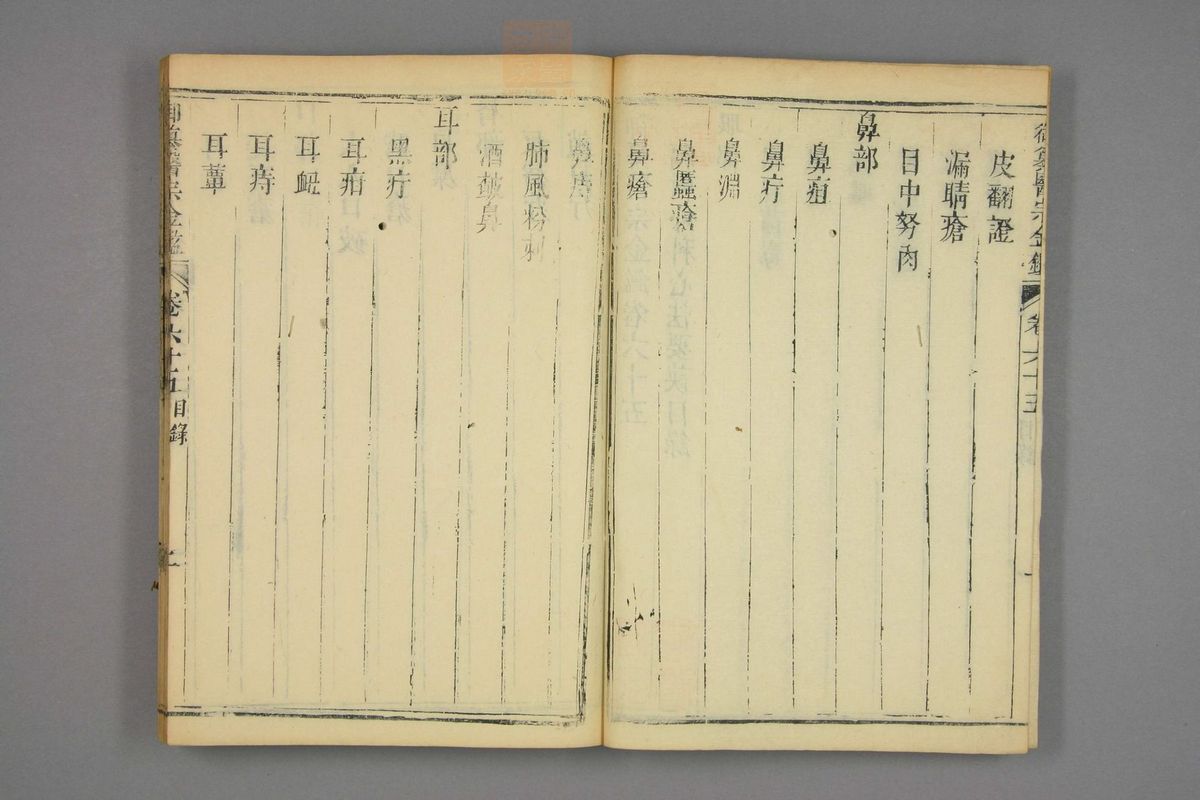 御纂醫宗金鑑
卷六十五
目錄
皮翻證
漏睛瘡
目中努肉
鼻部
鼻疽
鼻疔
鼻淵
鼻䘌瘡
鼻瘡
肺風粉刺
酒皶鼻
耳部
黑疔
耳疳
耳衄
耳痔
耳蕈
御纂醫宗金鑑
卷六十五
目錄
二